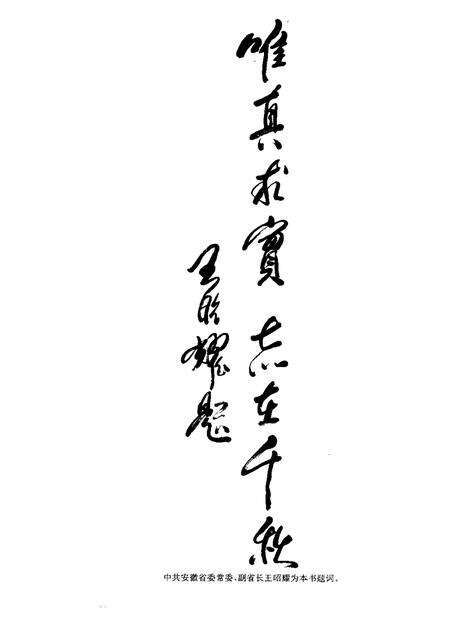 唯真求實志在千秋
王昭耀题
中共安徽省委常委、副省长王昭耀为本书题词。